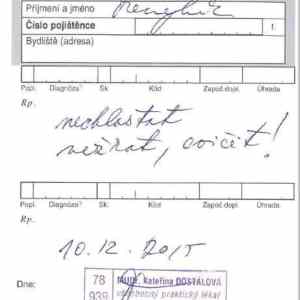 Příjmení a jméno
Číslo pojištěnce
Bydliště (adresa)
f.
Popl. Diagnóza? Sk. Kód Započ. dopl. Úhrada
Rp.
nechlastat
nežrat, cvičit!
Popl. Diagnóza? Sk. Kód Započ. dopl. Úhrada
Rp.
10.12.2015
Dne:
78
939
MUDr. Kateřina DOSTÁLOVÁ
praktický lékař